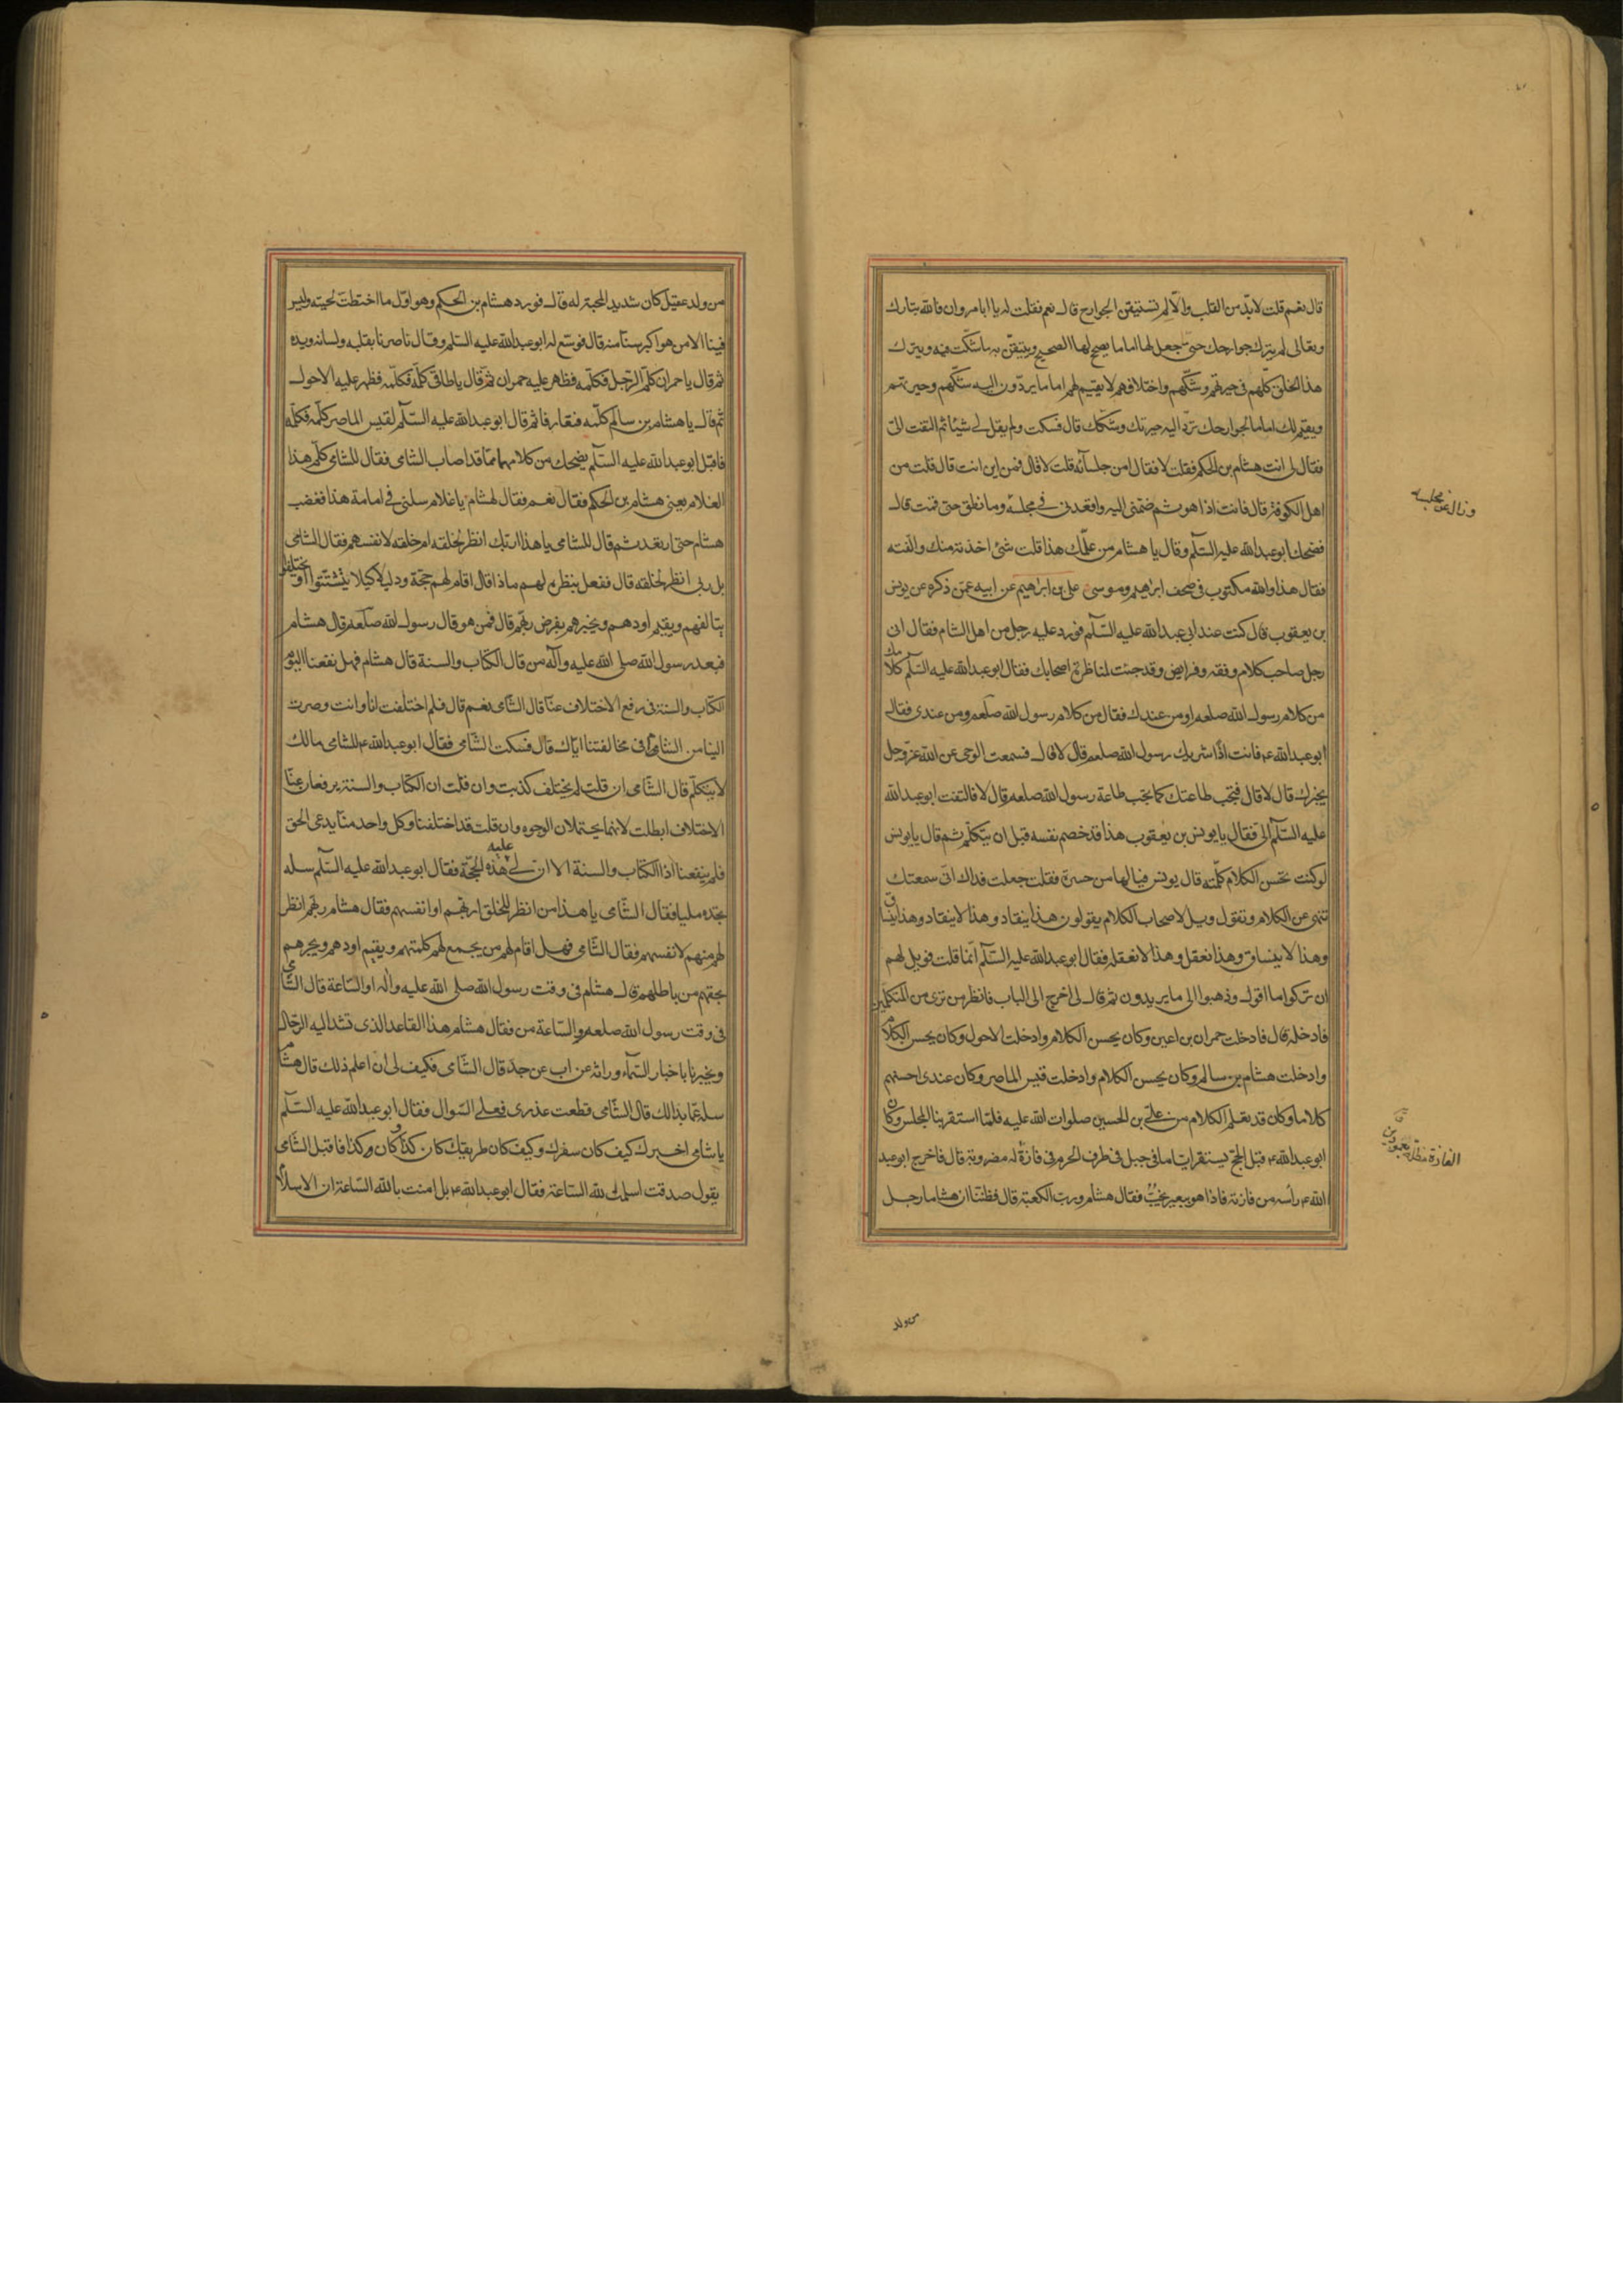 قال نعم قلت لابد من القلب والا لم تستيقن الجوارح قال نعم فقلت له يا ابا مروان فالله تبارك
وتعالى لم يترك جوارحك حتى جعل لها اماما يصحح لها الصحيح ويتيقن به ما شكت فيه ويترك
هذا الخلق كلهم في حيرتهم وشكهم واختلافهم لا يقيم لهم اماما يردون اليه شكهم وحيرتهم
ويقيم لك اماما لجوارحك ترد اليه حيرتك وشكك قال فسكت ولم يقل لي شيئا ثم التفت الى
فقال لى انت هشام بن الحكم فقلت لا فقال امن جلسائه قلت لا قال فمن اين انت قال قلت من
اهل الكوفة قال فانت اذا هو ثم ضمنى اليه واقعدنى فى مجلسه وما نطق حتى قمت قال
فضحك ابو عبدالله عليه السلم وقال يا هشام من علمك هذا قلت شئ اخذته منك والفته
فقال هذا والله مكتوب فى صحف ابراهيم وموسى على بن ابراهيم عن ابيه عمن ذكره عن يونس
بن يعقوب قال كنت عند ابى عبدالله عليه السلم فورد عليه رجل من اهل الشام فقال انى
رجل صاحب كلام وفقه وفرايض وقد جئت لمناظرة اصحابك فقال ابو عبدالله عليه السلم كلامك
من كلام رسول الله صلعم او من عندك فقال من كلام رسول الله صلعم ومن عندى فقال
ابو عبدالله ع فانت اذا شريك رسول الله صلعم قال لا قال فسمعت الوحى عن الله عز وجل
يخبرك قال لا قال فتجب طاعتك كما تجب طاعة رسول الله صلعم قال لا فالتفت ابو عبدالله
عليه السلم الى فقال يا يونس بن يعقوب هذا قد خصم نفسه قبل ان يتكلم ثم قال يا يونس
لو كنت تحسن الكلام كلمته قال يونس فيالها من حسرة فقلت جعلت فداك انى سمعتك
تنهى عن الكلام وتقول ويل لاصحاب الكلام يقولون هذا ينقاد وهذا لا ينقاد وهذا ينساق
وهذا لا ينساق وهذا نعقل وهذا لا نعقله فقال ابو عبدالله عليه السلم انما قلت فويل لهم
ان تركوا ما اقول وذهبوا الى ما يريدون ثم قال لى اخرج الى الباب فانظر من ترى من المتكلمين
فادخله قال فادخلت حمران بن اعين وكان يحسن الكلام وادخلت الاحول وكان يحسن الكلام
وادخلت هشام بن سالم وكان يحسن الكلام وادخلت قيس الماصر وكان عندى احسنهم
كلاما وكان قد تعلم الكلام من على بن الحسين صلوات الله عليه فلما استقر بنا المجلس وكان
ابو عبدالله ع قبل الحج يستقر اياما فى جبل فى طرف الحرم فى فازة له مضروبة قال فاخرج ابو عبد
الله ع رأسه من فازته فاذا هو ببعير يخب فقال هشام ورب الكعبة قال فظننا ان هشاما رجل
وزال عن مجلسه
الفازة مظلة بعمودين
من ولد
من ولد عقيل كان شديد المحبة له قال فورد هشام بن الحكم وهو اول ما اختطت لحيته وليس
فينا الا من هو اكبر سنا منه قال فوسع له ابو عبدالله عليه السلم وقال ناصرنا بقلبه ولسانه ويده
ثم قال يا حمران كلم الرجل فكلمه فظهر عليه حمران ثم قال يا طاقى كلمه فكلمه فظهر عليه الاحول
ثم قال يا هشام بن سالم كلمه فتعارفا ثم قال ابو عبدالله عليه السلم لقيس الماصر كلمه فكلمه
فاقبل ابو عبدالله عليه السلم يضحك من كلامهما مما قد اصاب الشامى فقال للشامى كلم هذا
الغلام يعنى هشام بن الحكم فقال نعم فقال لهشام يا غلام سلنى فى امامة هذا فغضب
هشام حتى ارتعد ثم قال للشامى يا هذا اربك انظر لخلقه ام خلقه لانفسهم فقال الشامى
بل ربى انظر لخلقه قال ففعل بنظره لهم ماذا قال اقام لهم حجة ودليلا كيلا يتشتتوا او يختلفوا
يتالفهم ويقيم اودهم ويخبرهم بفرض ربهم قال فمن هو قال رسول الله صلعم قال هشام
فبعد رسول الله صلى الله عليه وآله من قال الكتاب والسنة قال هشام فهل نفعنا اليوم
الكتاب والسنة فى رفع الاختلاف عنا قال الشامى نعم قال فلم اختلفت انا وانت وصرت
الينا من الشام فى مخالفتنا اياك قال فسكت الشامى فقال ابو عبدالله ع للشامى مالك
لا تتكلم قال الشامى ان قلت لم نختلف كذبت وان قلت ان الكتاب والسنة يرفعان عنا
الاختلاف ابطلت لانهما يحتملان الوجوه وان قلت قد اختلفنا وكل واحد منا يدعى الحق
فلم ينفعنا اذا الكتاب والسنة الا ان لى عليه هذه الحجة فقال ابو عبدالله عليه السلم سله
تجده مليا فقال الشامى يا هذا من انظر للخلق اربهم او انفسهم فقال هشام ربهم انظر
لهم منهم لانفسهم فقال الشامى فهل اقام لهم من يجمع لهم كلمتهم ويقيم اودهم ويخبرهم
بحقهم من باطلهم قال هشام فى وقت رسول الله صلى الله عليه وآله او الساعة قال الشامى
فى وقت رسول الله صلعم والساعة من فقال هشام هذا القاعد الذى تشد اليه الرحال
ويخبرنا باخبار السماء وراثة عن اب عن جد قال الشامى فكيف لى ان اعلم ذلك قال هشام
سله عما بدالك قال الشامى قطعت عذرى فعلى السوال فقال ابو عبدالله عليه السلم
يا شامى اخبرك كيف كان سفرك وكيف كان طريقك كان كذا وكان وكذا فاقبل الشامى
يقول صدقت اسلمت لله الساعة فقال ابو عبدالله ع بل امنت بالله الساعة ان الاسلام